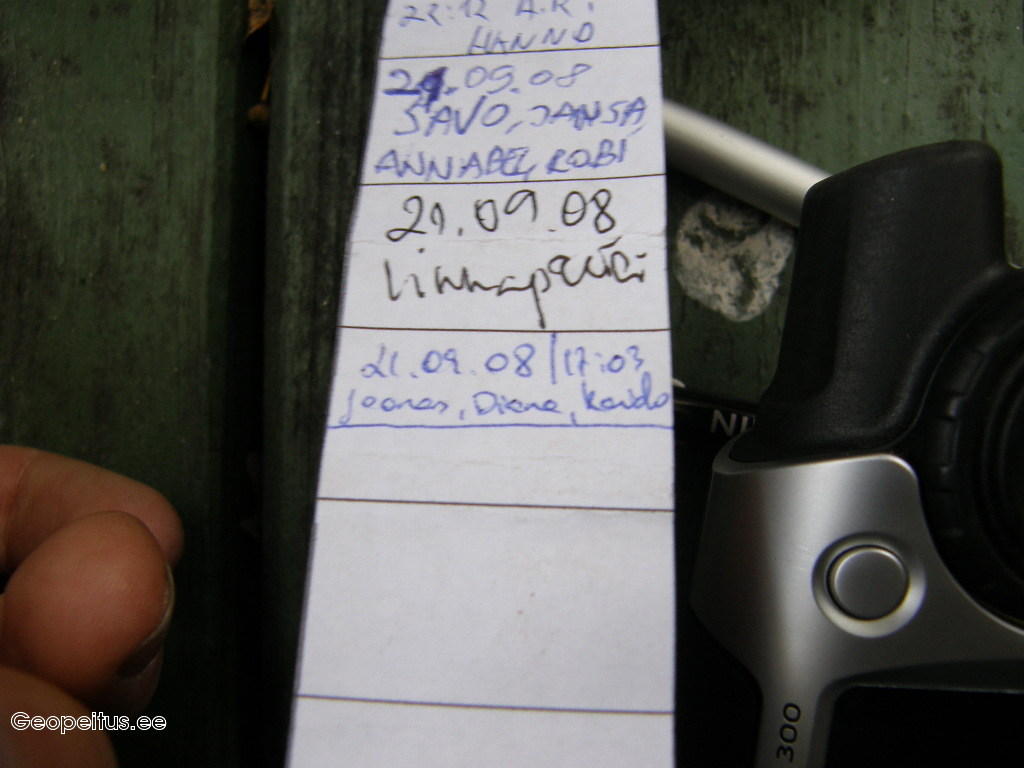 22:12 A.R.
HANNO
21.09.08
SAVO, JANSA,
ANNABEL, ROBI
21.09.08
21.09.08 | 17:03
Joonas, Diana, Kaido
NI
300
Geopeitus.ee